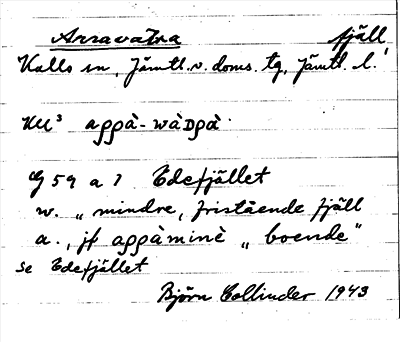 Arravatna fjäll
Kalls sn, Jämtl. v. doms. tg, Jämtl. l.
KU³ aρρà-wàDρà
G 59 a 7 Edefjället
w. „mindre, fristående fjäll
a., jf aρρàminè „boende"
se Edefjället
Björn Collinder 1943